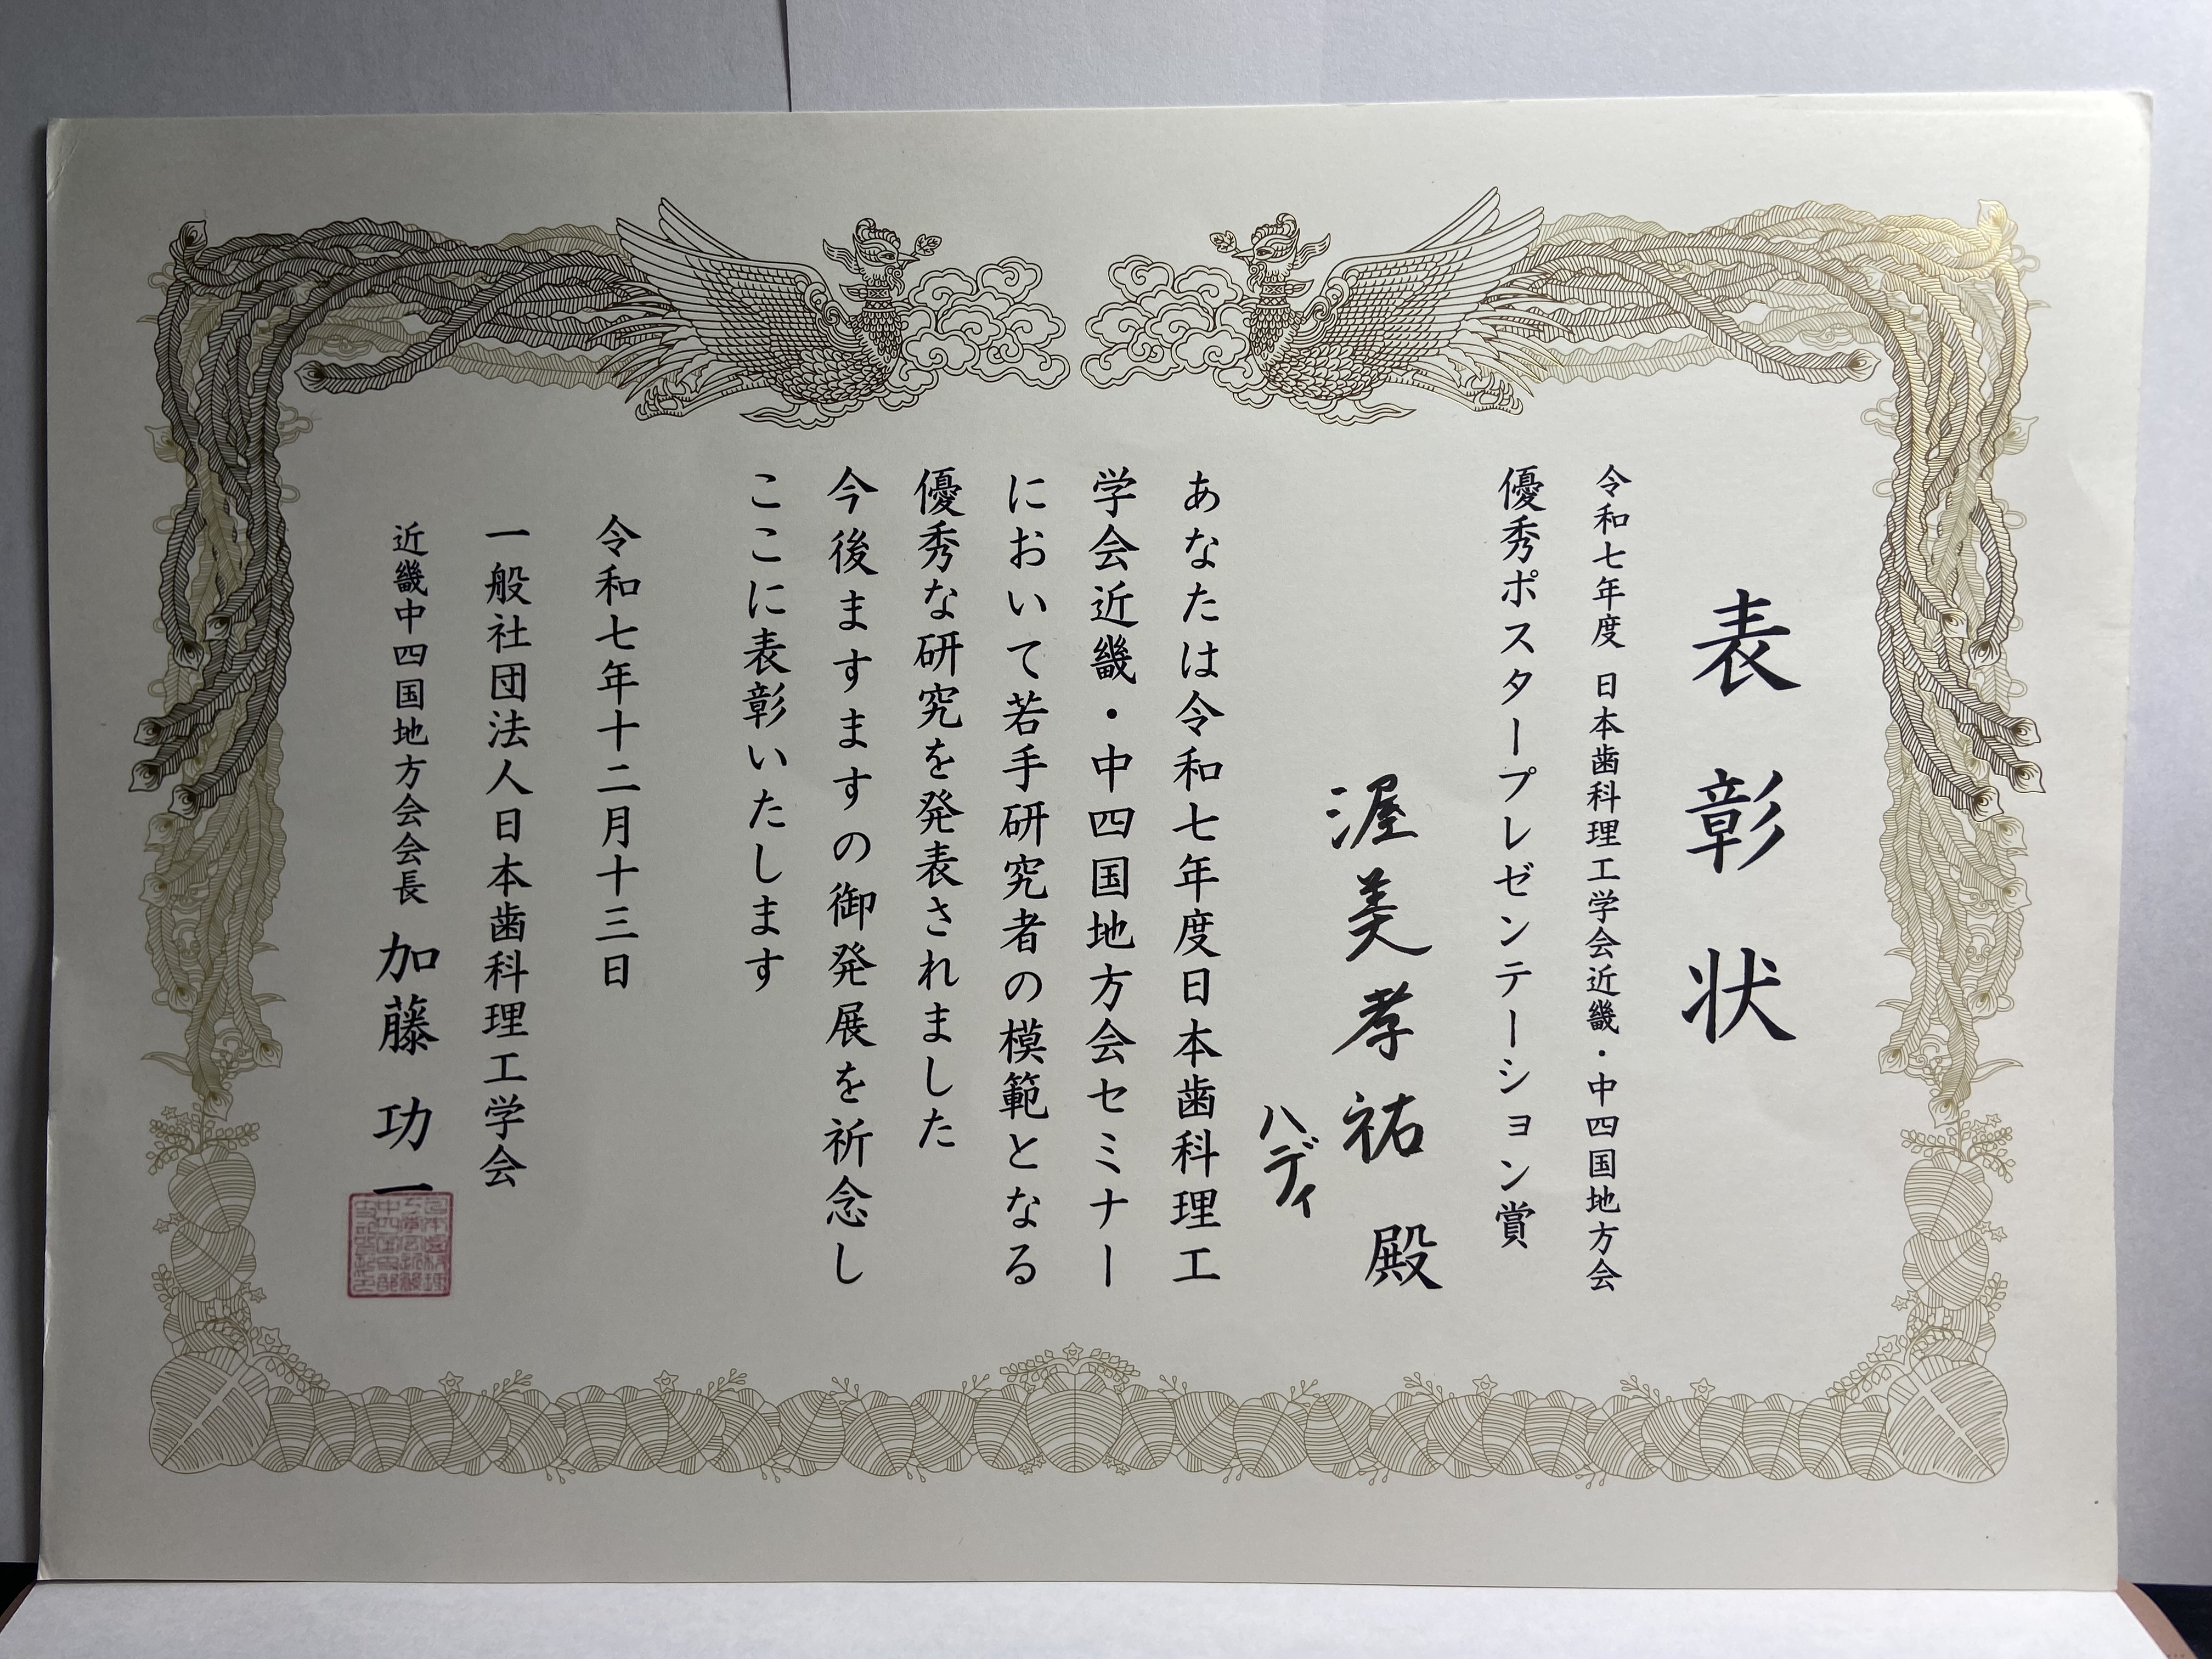 表彰状
令和七年度 日本歯科理工学会近畿・中四国地方会
優秀ポスタープレゼンテーション賞
渥美孝祐ハディ 殿
あなたは令和七年度日本歯科理工
学会近畿・中四国地方会セミナー
において若手研究者の模範となる
優秀な研究を発表されました
今後ますますの御発展を祈念し
ここに表彰いたします
令和七年十二月十三日
一般社団法人日本歯科理工学会
近畿中四国地方会会長 加藤功一